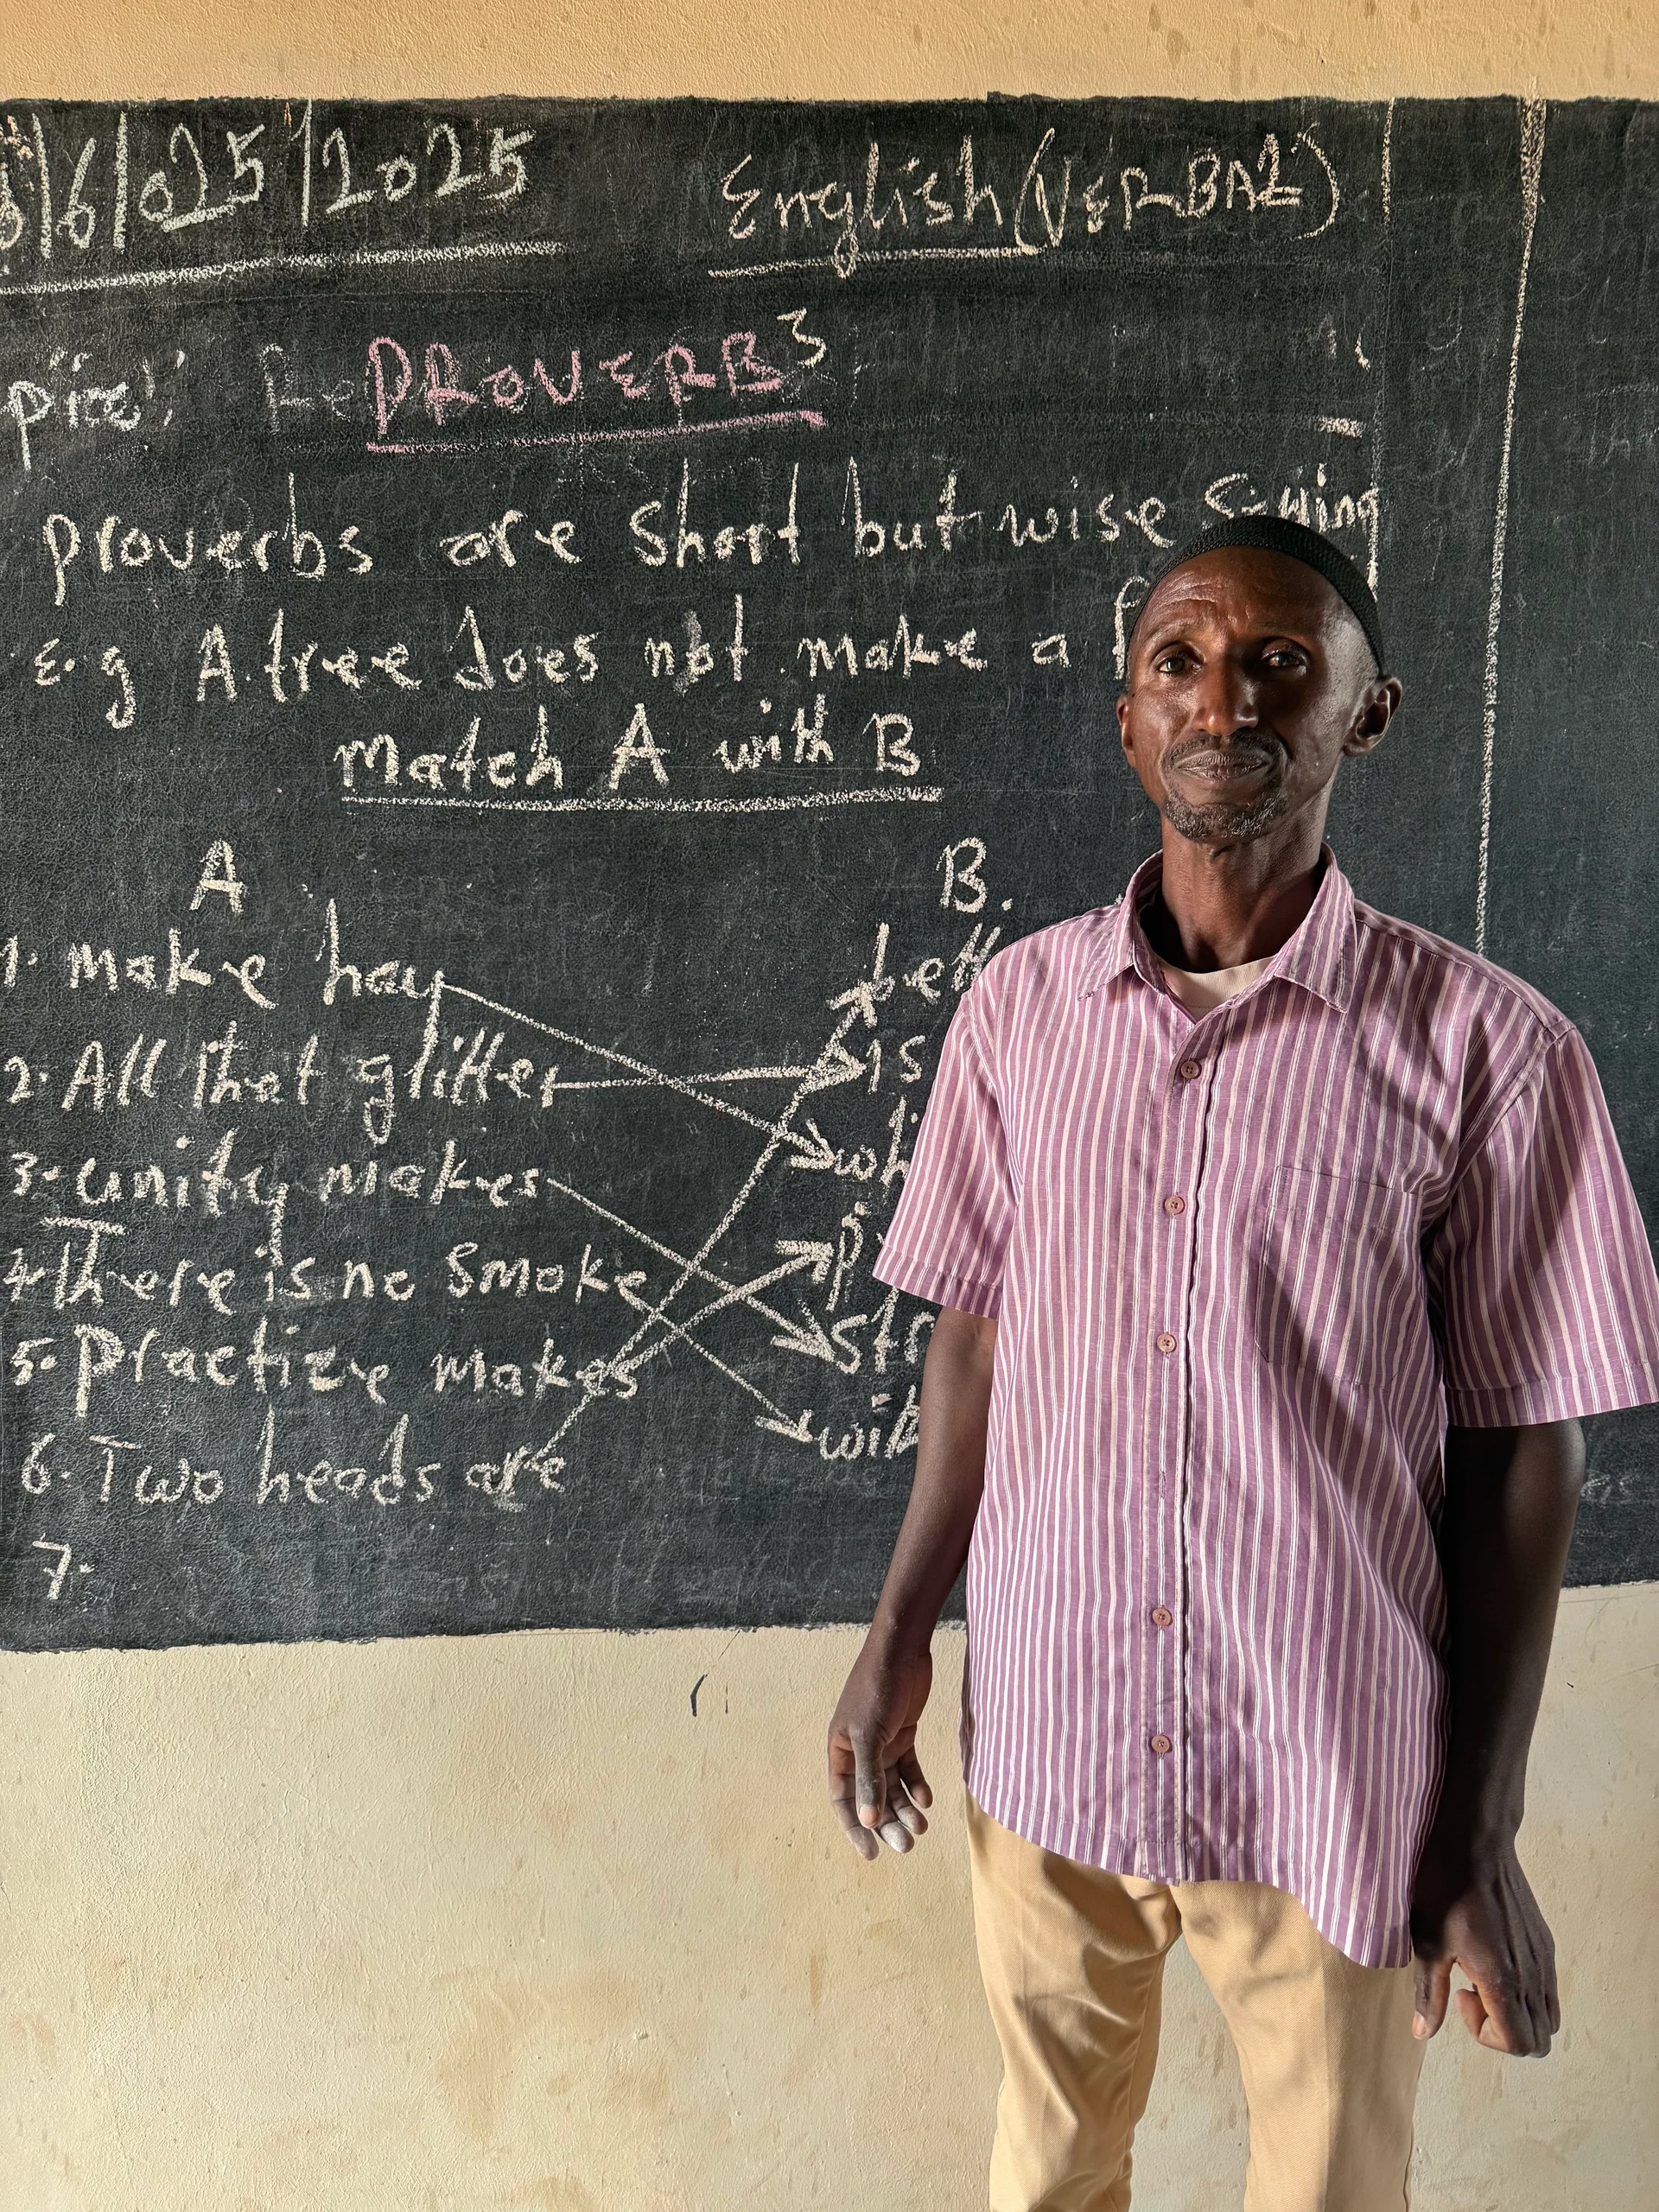 /6/2025/2025 English (VERBAL)
PROVERBS
Proverbs are short but wise saying
E.g A tree does not make a f
Match A with B
A B.
1. Make hay bett
2. All that glitter is
3. unity makes whi
4. There is no smoke p
5. Practize makes str
6. Two heads are wit
7.